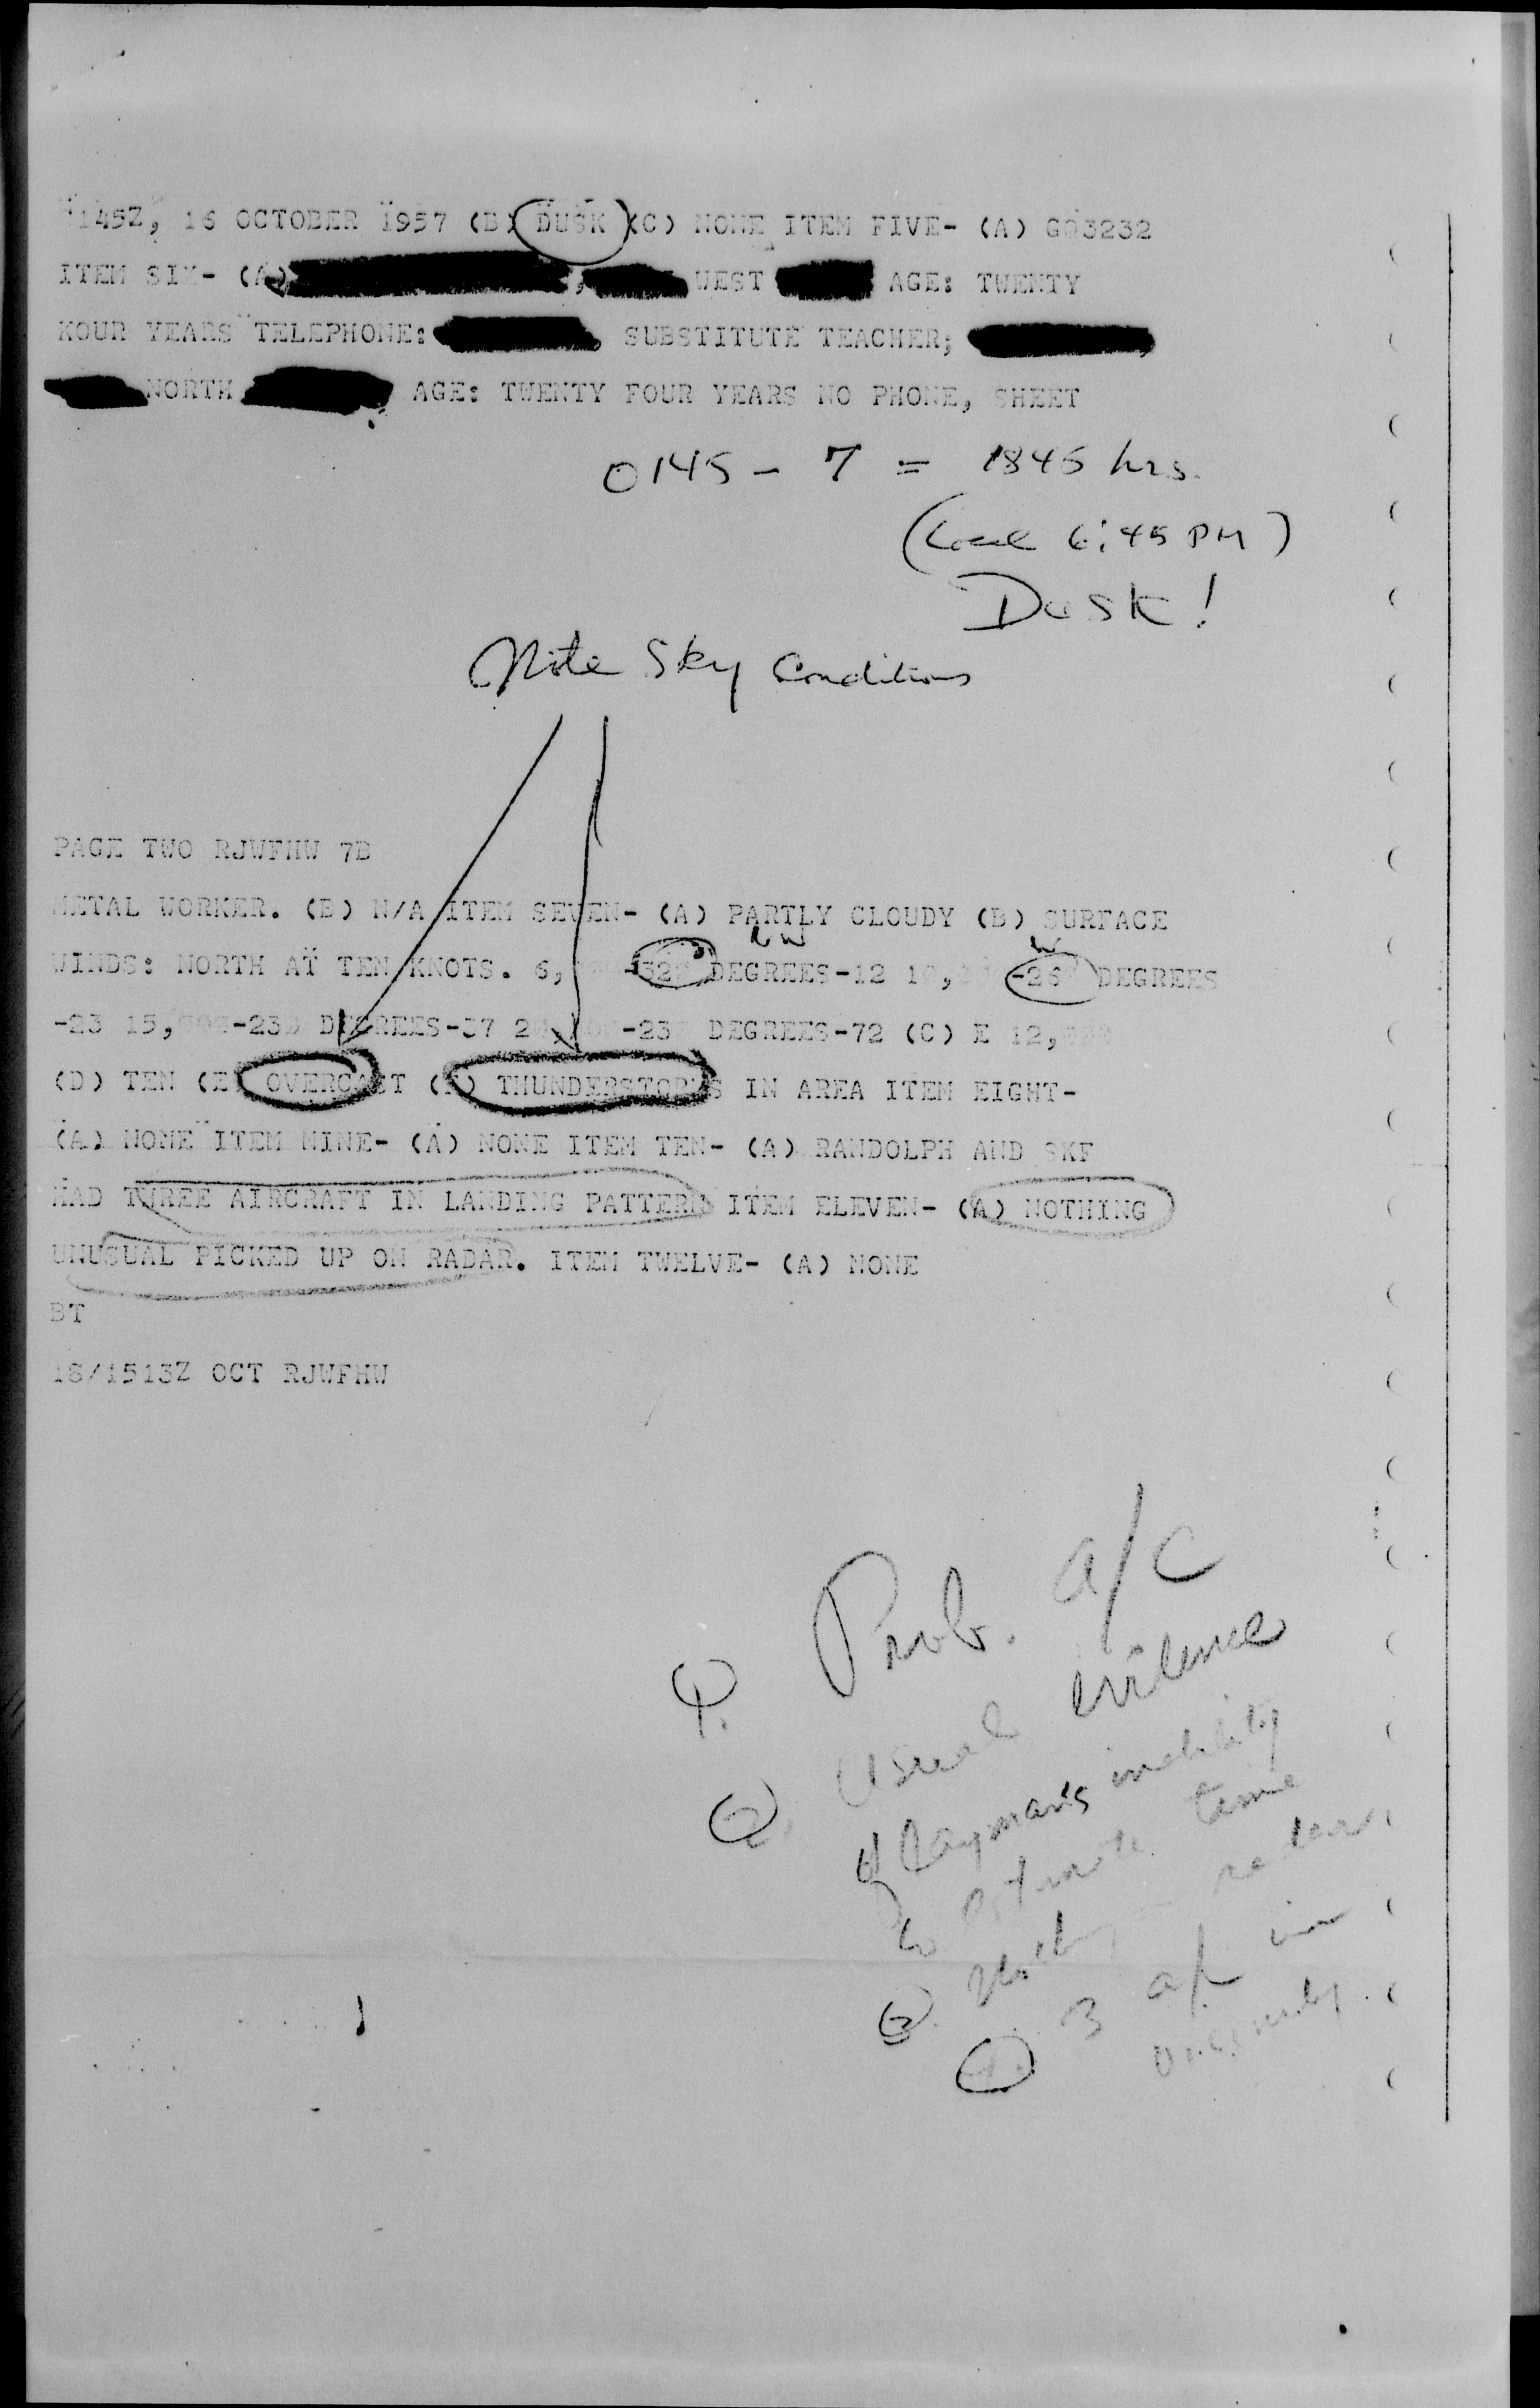 0145Z, 16 OCTOBER 1957 (B) DUSK (C) NONE ITEM FIVE- (A) GG3232
ITEM SIX- (A) , WEST AGE: TWENTY
KOUR YEARS TELEPHONE: SUBSTITUTE TEACHER;
NORTH AGE: TWENTY FOUR YEARS NO PHONE, SHEET
0145 - 7 = 1845 hrs.
(Local 6:45 PM)
Dusk!
Note Sky Conditions
PAGE TWO RJWFHW 7B
METAL WORKER. (B) N/A ITEM SEVEN- (A) PARTLY CLOUDY (B) SURFACE
NW W
WINDS: NORTH AT TEN KNOTS. 6, -32 DEGREES-12 1 , -26 DEGREES
-23 15, -23 DEGREES-37 2 -23 DEGREES-72 (C) E 12,
(D) TEN (E) OVERCAST ( ) THUNDERSTORMS IN AREA ITEM EIGHT-
(A) NONE ITEM NINE- (A) NONE ITEM TEN- (A) RANDOLPH AND SKF
HAD THREE AIRCRAFT IN LANDING PATTERN ITEM ELEVEN- (A) NOTHING
UNUSUAL PICKED UP ON RADAR. ITEM TWELVE- (A) NONE
BT
18/1513Z OCT RJWFHW
1. Prob. a/c
2. Usual evidence
of layman's inability
to estimate time
3. radar.
3 a/c in